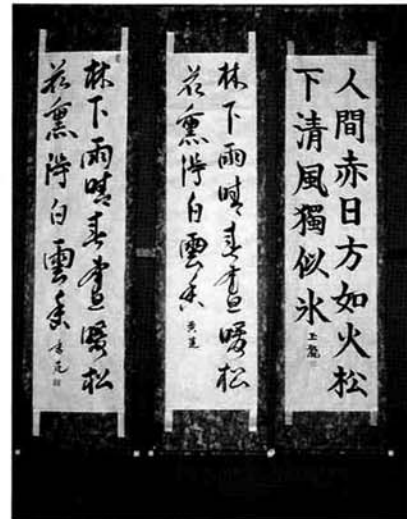 人間赤日方如火松
下清風獨似氷
玉龍
林下雨晴春晝暖松
花熏得白雲香
林下雨晴春晝暖松
花熏得白雲香